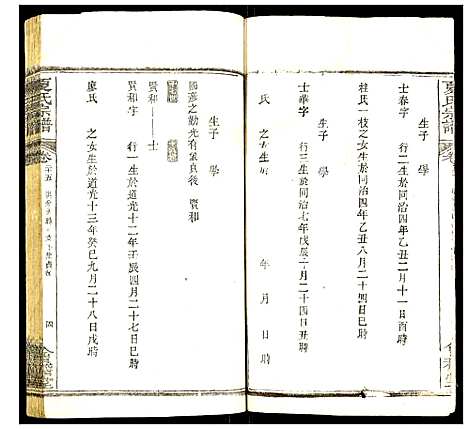 夏氏宗譜
士春字　行二生於同治四年乙丑二月十一日酉時
桂氏　一枝之女生於同治四年乙丑八月二十四日巳時
生子　學
士華字　行三生於同治七年戊辰　月二十四日亥時
氏　之女生於　年　月　日　時
生子　學
國彥之勛光有策貞後　賢和
賢和——士
賢和字　行一生於道光十二年壬辰四月二十七日巳時
廖氏　之女生於道光十三年癸巳九月二十八日戌時
夏氏宗譜
卷
四